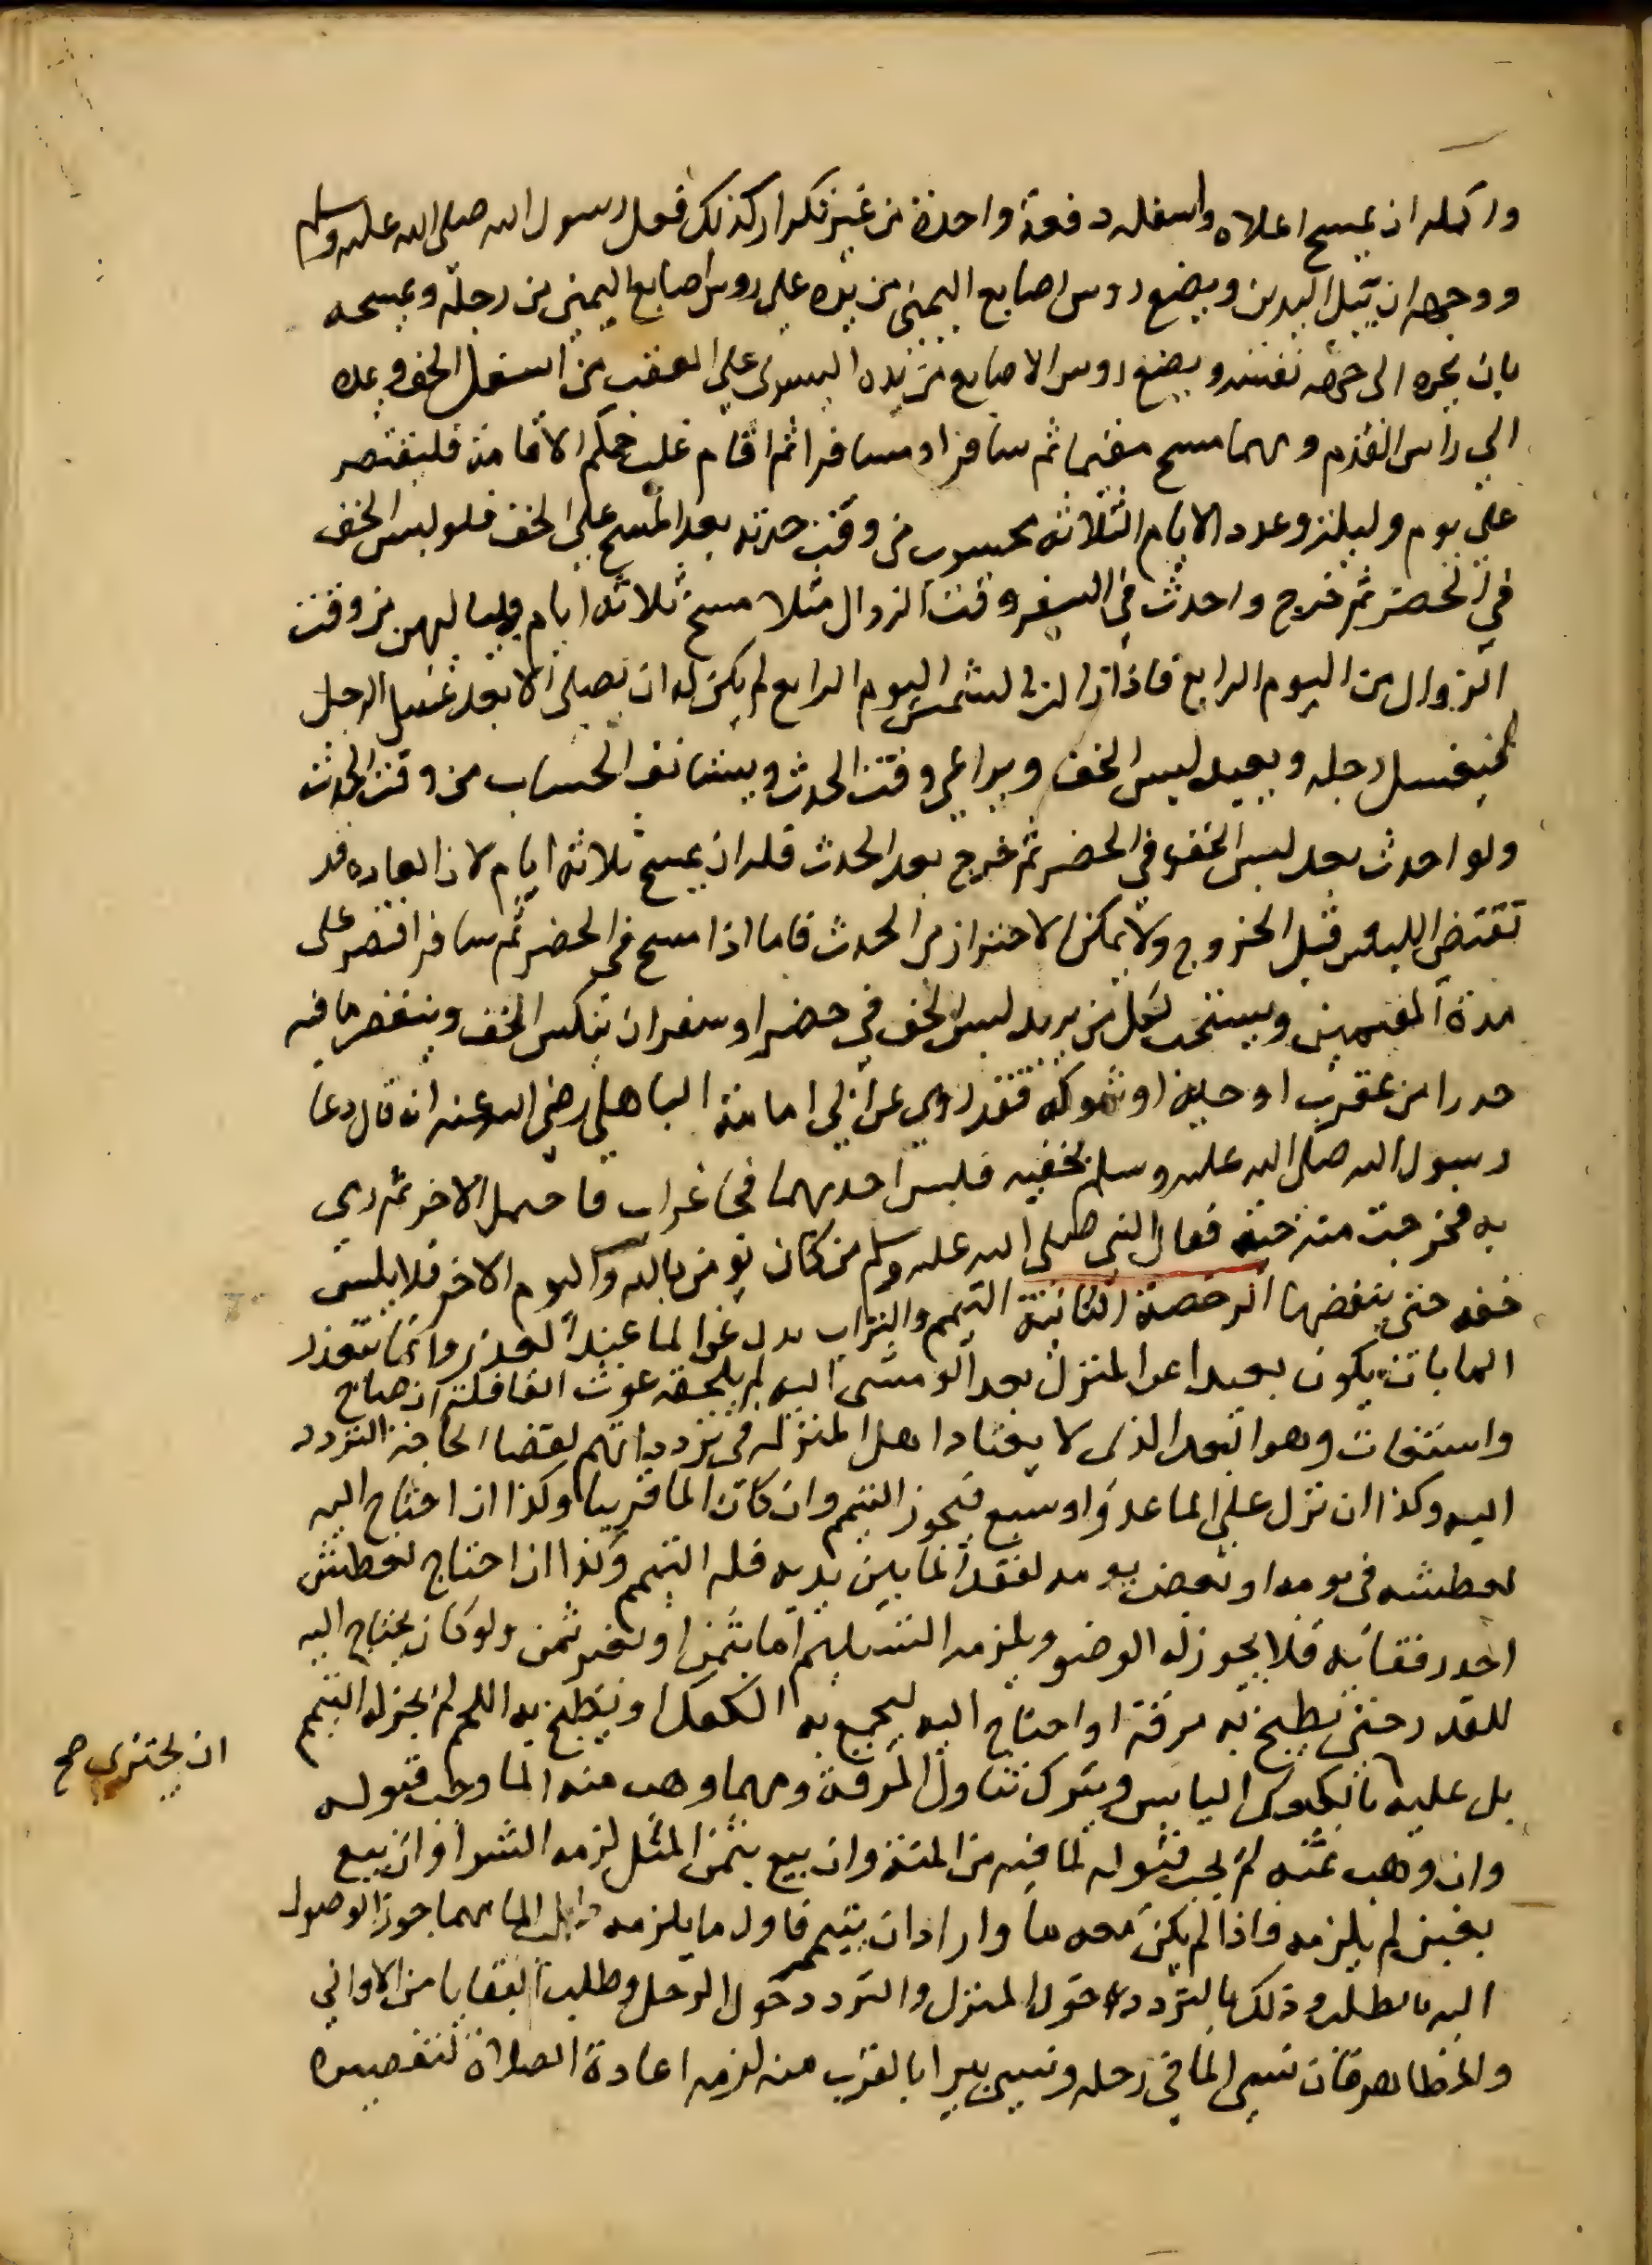 واكمله ان يمسح اعلاه واسفله دفعة واحدة من غير تكرار كذلك فعل رسول الله صلى الله عليه وسلم
ووجهه ان يبل اليدين ويضع روس اصابع اليمنى من يده على روس اصابع اليمنى من رجله ويمسحه
بان يجره الى جهة نفسه ويضع روس الاصابع من يده اليسرى على العقب من اسفل الخف ويمده
الى راس القدم ومهما مسح مقيما ثم سافر او مسافرا ثم اقام غلب حكم الاقامة فليقتصر
على يوم وليلة وعدد الايام الثلاثة محسوب من وقت حدثه بعد المسح على الخف فلو لبس الخف
في الحضر ثم خرج واحدث في السفر وقت الزوال مثلا مسح ثلاثة ايام ولياليهن من وقت
الزوال من اليوم الرابع فاذا زالت الشمس اليوم الرابع لم يكن له ان يصلى الا بعد غسل الرجل
فيغسل رجله ويعيد لبس الخف ويراعى وقت الحدث ويستانف الحساب من وقت الحدث
ولو احدث بعد لبس الخف في الحضر ثم خرج بعد الحدث فله ان يمسح ثلاثة ايام لان العاده قد
تقتضى اللبس قبل الخروج ولا يمكن الاحتراز من الحدث فاما اذا مسح في الحضر ثم سافر اقتصر على
مدة المقيمين ويستحب لكل من يريد لبس الخف في حضر او سفر ان ينكس الخف وينفض ما فيه
حدرا من عقرب او حية او شوكة فقد روى عن ابي امامة الباهلي رضى الله عنه انه قال دعا
رسول الله صلى الله عليه وسلم بخفيه فلبس احدهما فجا غراب فاحتمل الاخر ثم رمى
به فخرجت منه حية فقال النبي صلى الله عليه وسلم من كان يومن بالله واليوم الاخر فلا يلبس
خفه حتى ينفضهما الرخصة الثانية التيمم والتراب بدل عن الما عند العذر وانما يتعذر
الما بان يكون بعيدا عن المنزل بعدا لو مشى اليه لم يلحقه غوث القافلة ان صاح
واستغاث وهو البعد الذى لا يعتاد اهل المنزل في تردداتهم لقضا الحاجة التردد
اليه وكذا ان نزل على الما عدو او سبع فيجوز التيمم وان كان الما قريبا وكذا ان احتاج اليه
لعطشه في يومه او بعض يومه لفقد الما بين يديه فله التيمم وكذا ان احتاج لعطش
احد رفقائه فلا يجوز له الوضو ويلزمه التسليم اما بثمن او بغير ثمن ولو كان يحتاج اليه
للقدر حتى يطبخ به مرقة او احتاج اليه ليجمع به الكعك او يطبخ به اللحم لم يجز له التيمم
بل عليه بالكعك اليابس ويترك تناول المرقة ومهما وهب منه الما وجب قبوله
ان يجتزى صح
وان وهب ثمنه لم يجب قبوله لما فيه من المنة وان بيع بثمن المثل لزمه الشرا وان بيع
بغبن لم يلزمه فاذا لم يكن معه ما واراد ان يتيمم فاول ما يلزمه طلب الما مهما جوز الوصول
اليه بالطلب وذلك بالتردد حول المنزل والتردد حول الرحل وطلب البقايا من الاوانى
والمطاهر فان نسى الما في رحله ونسى بيرا بالقرب منه لزمه اعادة الصلاة لتقصيره